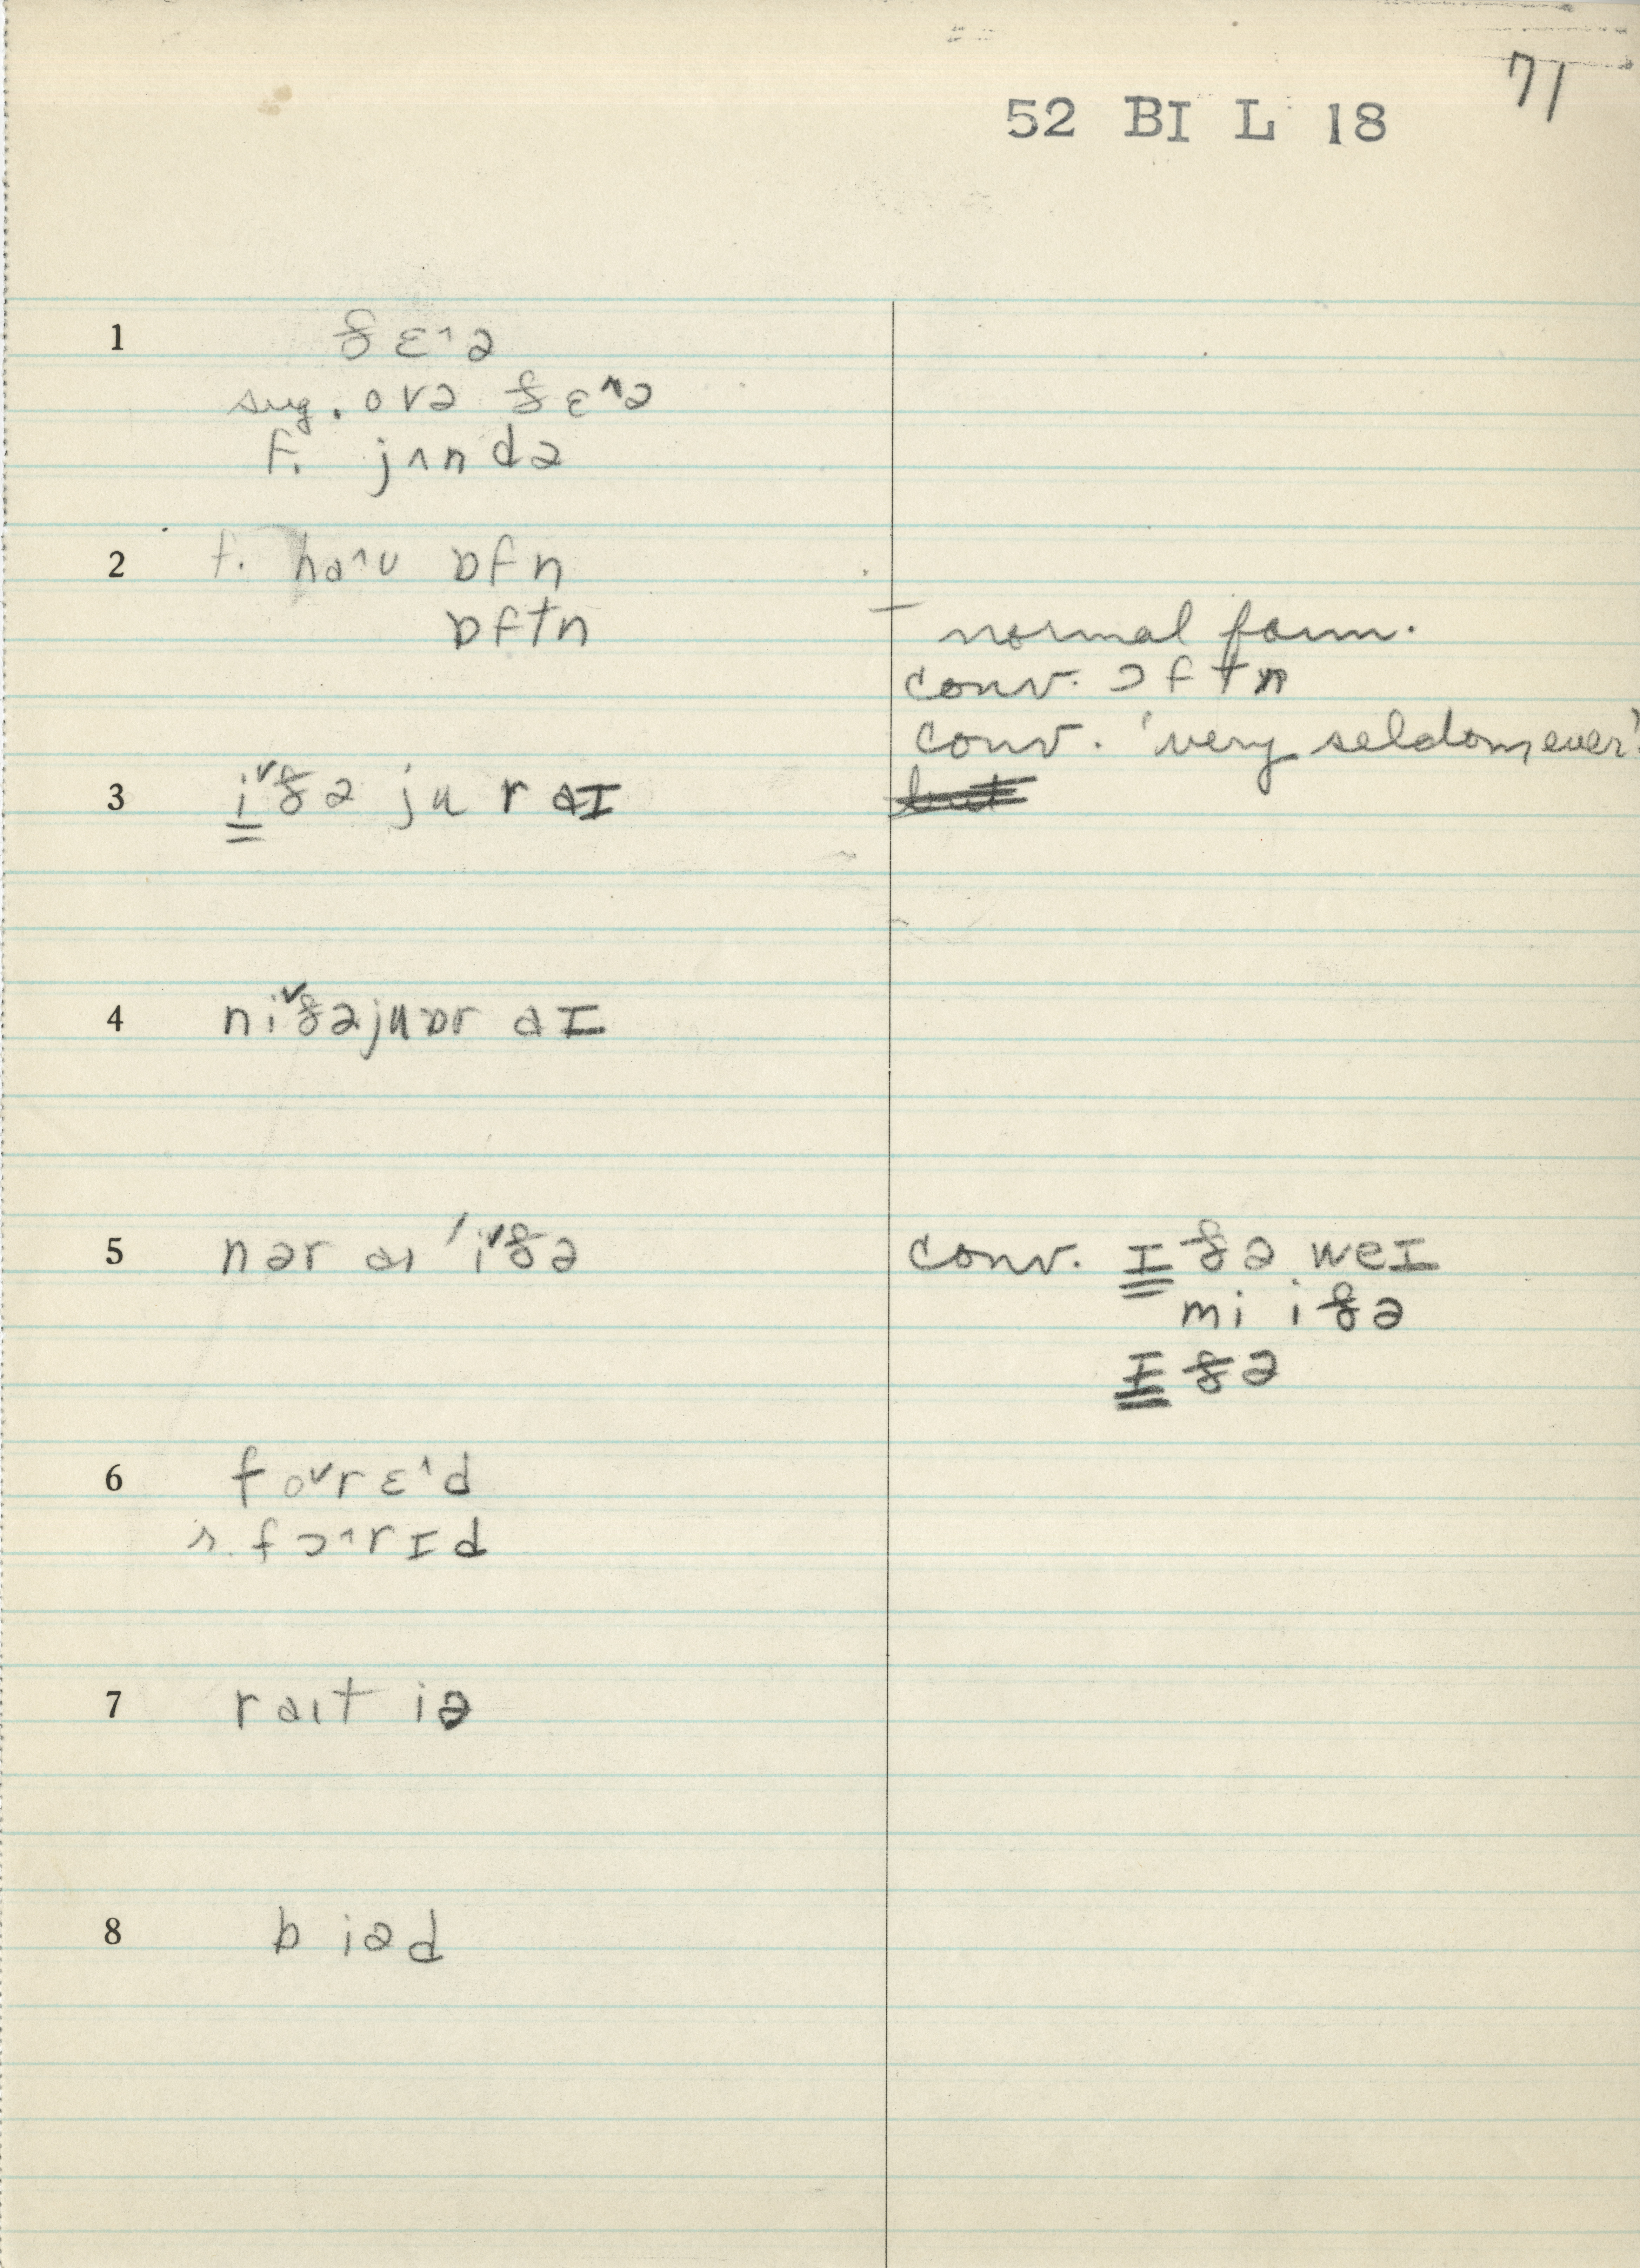 71
52 BI L 18
1 ðɛ^ə
sug. ovə ðɛ^ə
F. jʌndə
2 f. haʌu ɒfn
ɒftn
— normal form.
conv. ɔftn
conv. 'very seldom, ever'
3 i˅ðə ju r aɪ
but
4 ni˅ðəjuər aɪ
5 nər aɪ 'i˅ðə
conv. ɪðə weɪ
mi iðə
ɪðə
6 fo˅rɛ^d
s. fɔ^rɪd
7 raɪt iə
8 biəd